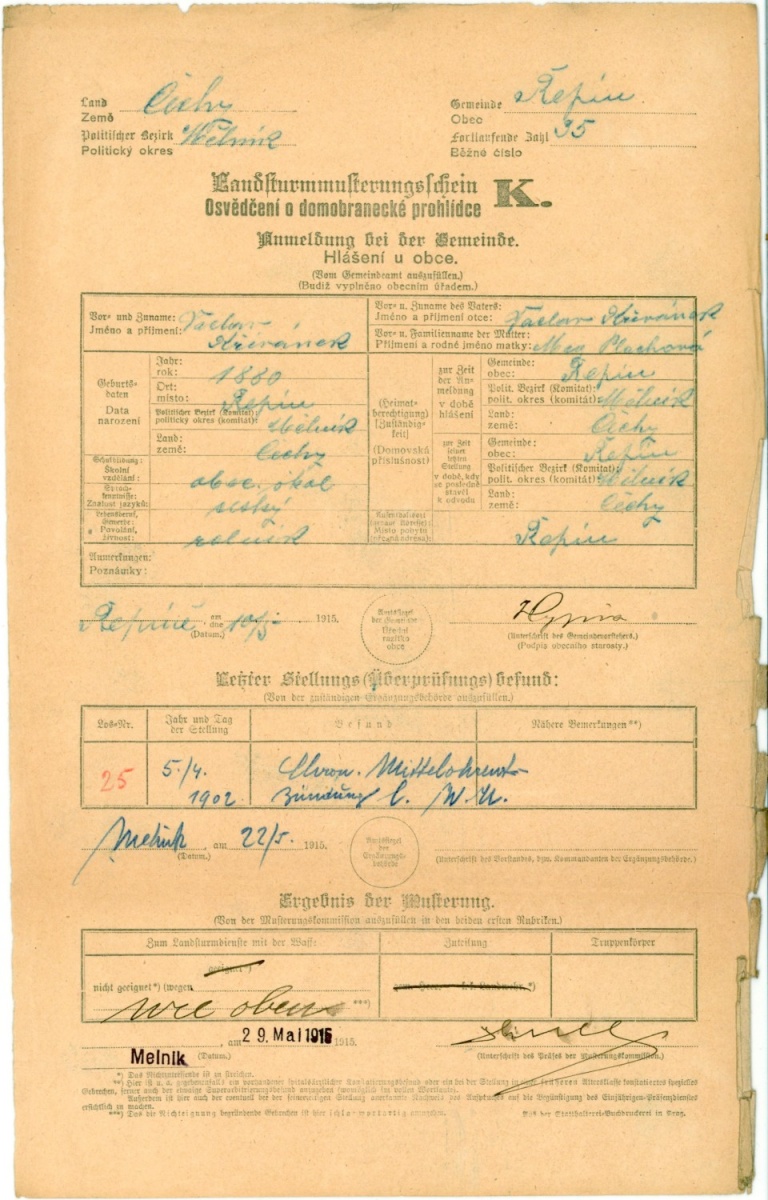 Land Čechy
Země
Gemeinde Řepín
Obec
Politischer Bezirk Mělník
Politický okres
Fortlaufende Zahl 35
Běžné číslo
Landsturmmusterungsschein K.
Osvědčení o domobranecké prohlídce
Anmeldung bei der Gemeinde.
Hlášení u obce.
(Vom Gemeindeamt auszufüllen.)
(Budiž vyplněno obecním úřadem.)
Vor- und Zuname: Václav
Jméno a příjmení: Křivánek
Vor- u. Zuname des Vaters:
Jméno a příjmení otce: Václav Křivánek
Vor- u. Familienname der Mutter:
Příjmení a rodné jméno matky: Plachová
Geburtsdaten
Data narození
Jahr:
rok: 1880
Ort:
místo: Řepín
Politischer Bezirk (Komitat):
politický okres (komitát): Mělník
Land:
země: Čechy
(Heimatberechtigung)
[Zuständigkeit]
(Domovská příslušnost)
zur Zeit der Anmeldung
v době hlášení
Gemeinde:
obec: Řepín
Polit. Bezirk (Komitat):
polit. okres (komitát): Mělník
Land:
země: Čechy
zur Zeit seiner letzten Stellung
v době, kdy se posledně stavěl k odvodu
Gemeinde:
obec: Řepín
Politischer Bezirk (Komitat):
polit. okres (komitát): Mělník
Land:
země: Čechy
Schulbildung:
Školní vzdělání: obec. škol
Sprachkenntnisse:
Znalost jazyků: český
Lebensberuf, Gewerbe:
Povolání, živnost: rolník
Aufenthaltsort
Místo pobytu
Řepín
Anmerkungen:
Poznámky:
Řepíně am
dne 10/5 1915.
(Datum.)
Amtssiegel der Gemeinde
Úřední razítko obce
(Unterschrift des Gemeindevorstehers.)
(Podpis obecního starosty.)
Letzter Stellungs(Überprüfungs)befund:
(Von der zuständigen Ergänzungsbehörde auszufüllen.)
Los-Nr.
Jahr und Tag der Stellung
Befund
Nähere Bemerkungen**)
25
5./4.
1902
Chron. Mittelohrent-
zündung C. W. U.
Melnik, am 22/5. 1915.
(Datum.)
Amtssiegel der Ergänzungsbehörde
(Unterschrift des Vorstandes, bzw. Kommandanten der Ergänzungsbehörde.)
Ergebnis der Musterung.
(Von der Musterungskommission auszufüllen in den beiden ersten Rubriken.)
Zum Landsturmdienste mit der Waffe:
Zuteilung
Truppenkörper
geeignet*)
nicht geeignet*) (wegen
wie oben ***)
Melnik, am 29. Mai 1915 1915.
(Datum.)
(Unterschrift des Präses der Musterungskommission.)
*) Das Nichtzutreffende ist zu streichen.
***) Das die Nichteignung begründende Gebrechen ist hier schlagwortartig anzugeben.
Aus der Statthalterei-Buchdruckerei in Prag.